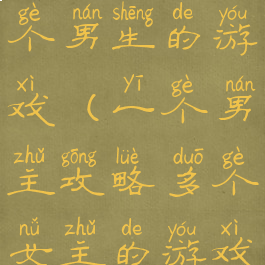 gè nán shēng de yóu
个男生的游
xì ( yī gè nán
戏（一个男
zhǔ gōng lüè duō gè
主攻略多个
nǚ zhǔ de yóu xì
女主的游戏